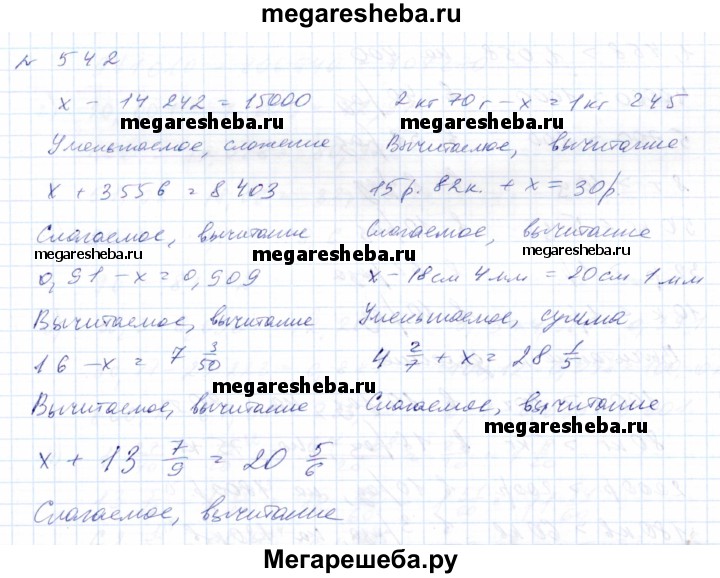 megaresheba.ru
№ 542
x - 14 242 = 15000
2 кг 70 г - x = 1 кг 245
megaresheba.ru
megaresheba.ru
Уменьшаемое, сложение
Вычитаемое, вычитание
x + 3556 = 8 403
15 р. 82 к. + x = 30 р.
megaresheba.ru
Слагаемое, вычитание
Слагаемое, вычитание
megaresheba.ru
megaresheba.ru
megaresheba.ru
0,91 - x = 0,909
x - 18 см 4 мм = 20 см 1 мм
megaresheba.ru
Вычитаемое, вычитание
Уменьшаемое, сумма
16 - x = 7 3/50
4 2/7 + x = 28 1/5
megaresheba.ru
Вычитаемое, вычитание
Слагаемое, вычитание
megaresheba.ru
x + 13 7/9 = 20 5/6
Слагаемое, вычитание
Мегарешеба.ру